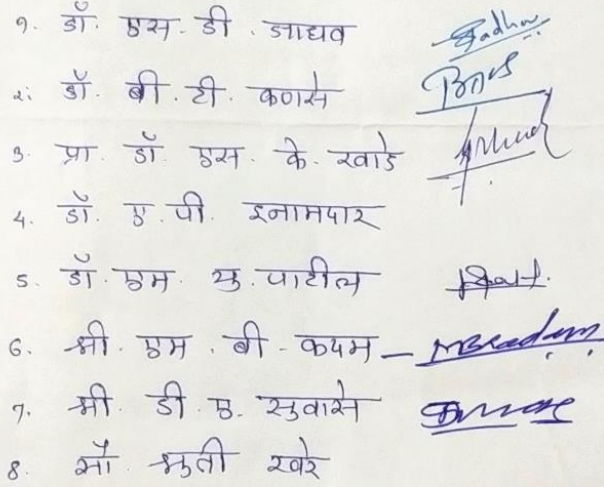 १. डॉ. एस. डी. जाधव
२. डॉ. बी. टी. कणसे
३. प्रा. डॉ. एस. के. खाडे
4. डॉ. ए. पी. इनामदार
5. डॉ. एम. यु. पाटील
6. श्री. एम. बी. कदम - MBKadam
7. श्री. डी. ए. सुवासे
8. सौ. श्रुती खरे